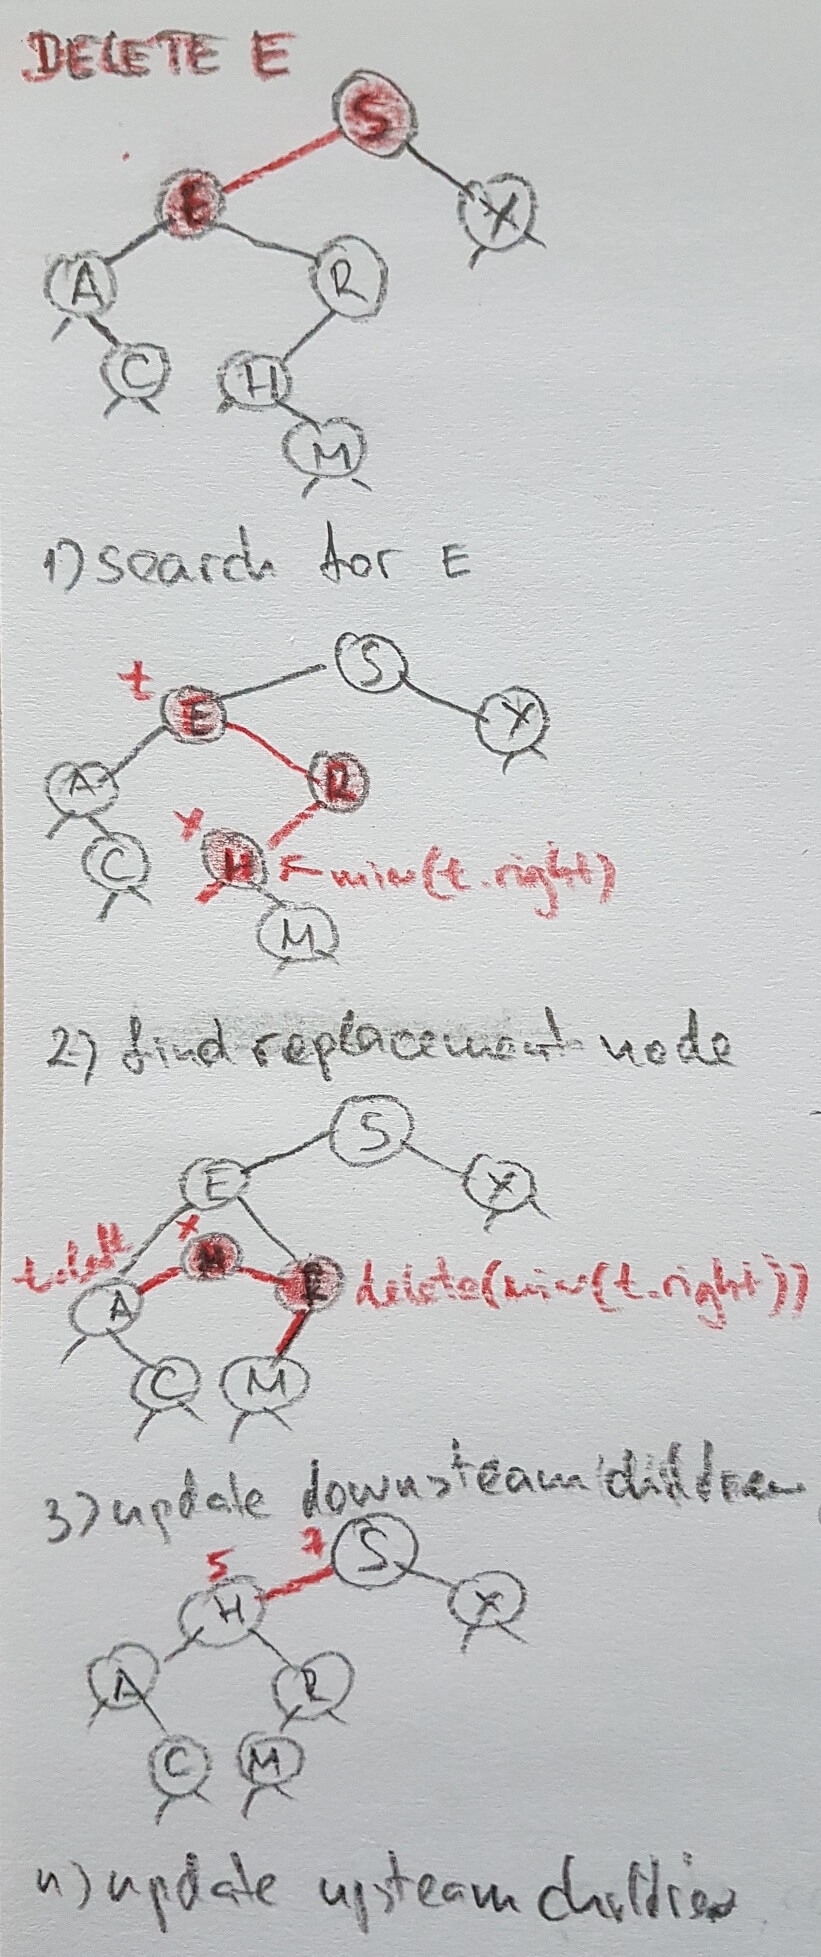 DELETE E
S
E
X
A
R
C
H
M
1) search for E
t
S
E
X
A
R
x
C
H
← min(t.right)
M
2) find replacement node
S
E
X
t.left
x
H
R
delete(min(t.right))
A
C
M
3) update downsteam children
5
7
S
H
X
A
R
C
M
4) update upsteam children